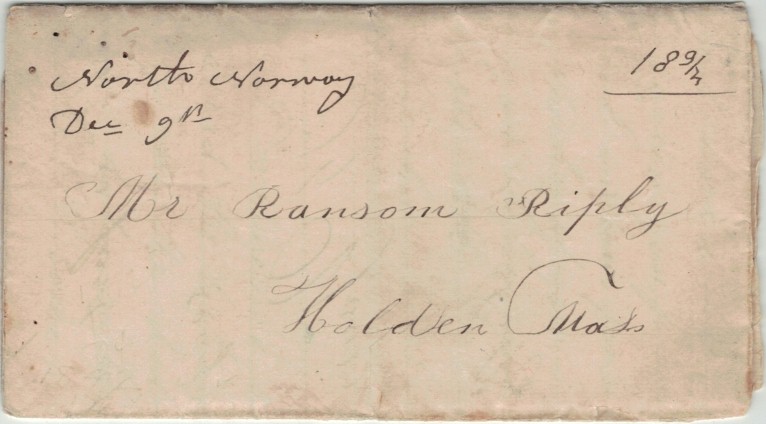 North Norway
18 3/4
Dec 9th
Mr Ransom Riply
Holden Mass